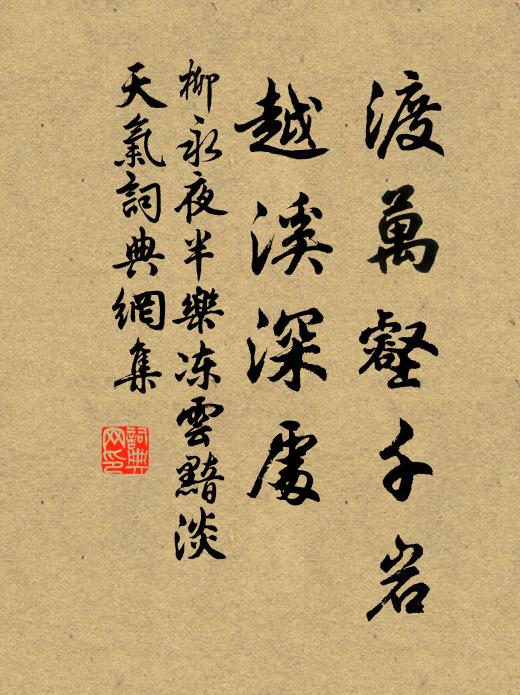 渡萬壑千岩
越溪深處
柳永夜半樂凍雲黯淡
天氣詞典網集
詞典
网印